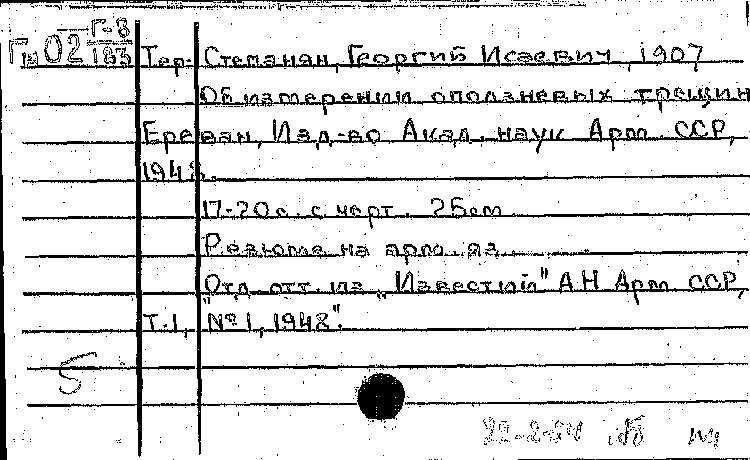 Гш 02 Г-8/183
Тер- Степанян, Георгий Исаевич, 1907
Об измерении оползневых трещин
Ереван, Изд-во Акад. наук Арм. ССР,
1948.
17-20 с. с черт. 25 см.
Резюме на арм. яз.
Отд. отт. из „Известий" АН Арм. ССР,
"Т.1, №1, 1948".
5
22-2-54